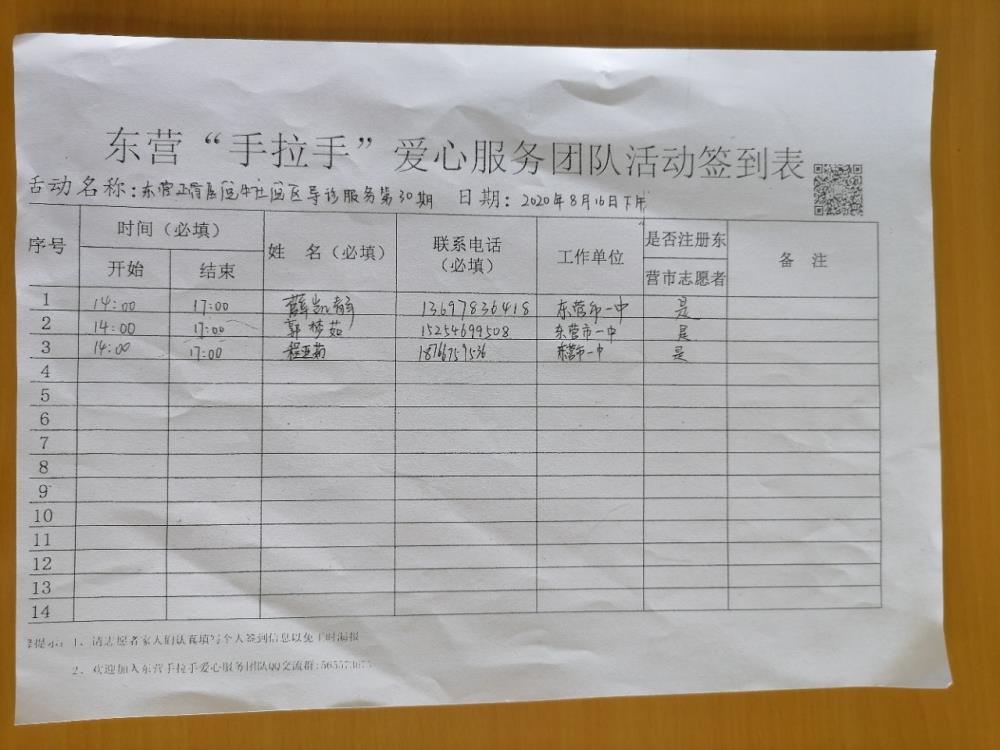 东营“手拉手”爱心服务团队活动签到表
活动名称：东营正骨医院牛社区导诊服务第30期 日期：2020年8月16日下午
序号 时间（必填） 姓 名（必填） 联系电话（必填） 工作单位 是否注册东营市志愿者 备 注
开始 结束
1 14:00 17:00 薛凯 13697836418 东营市一中 是
2 14:00 17:00 郭梦茹 15254699508 东营市一中 是
3 14:00 17:00 程亚菊 18766759536 东营市一中 是
4
5
6
7
8
9
10
11
12
13
14
提示：1、请志愿者家人们认真填写个人签到信息以免工时漏报
2、欢迎加入东营手拉手爱心服务团队QQ交流群：